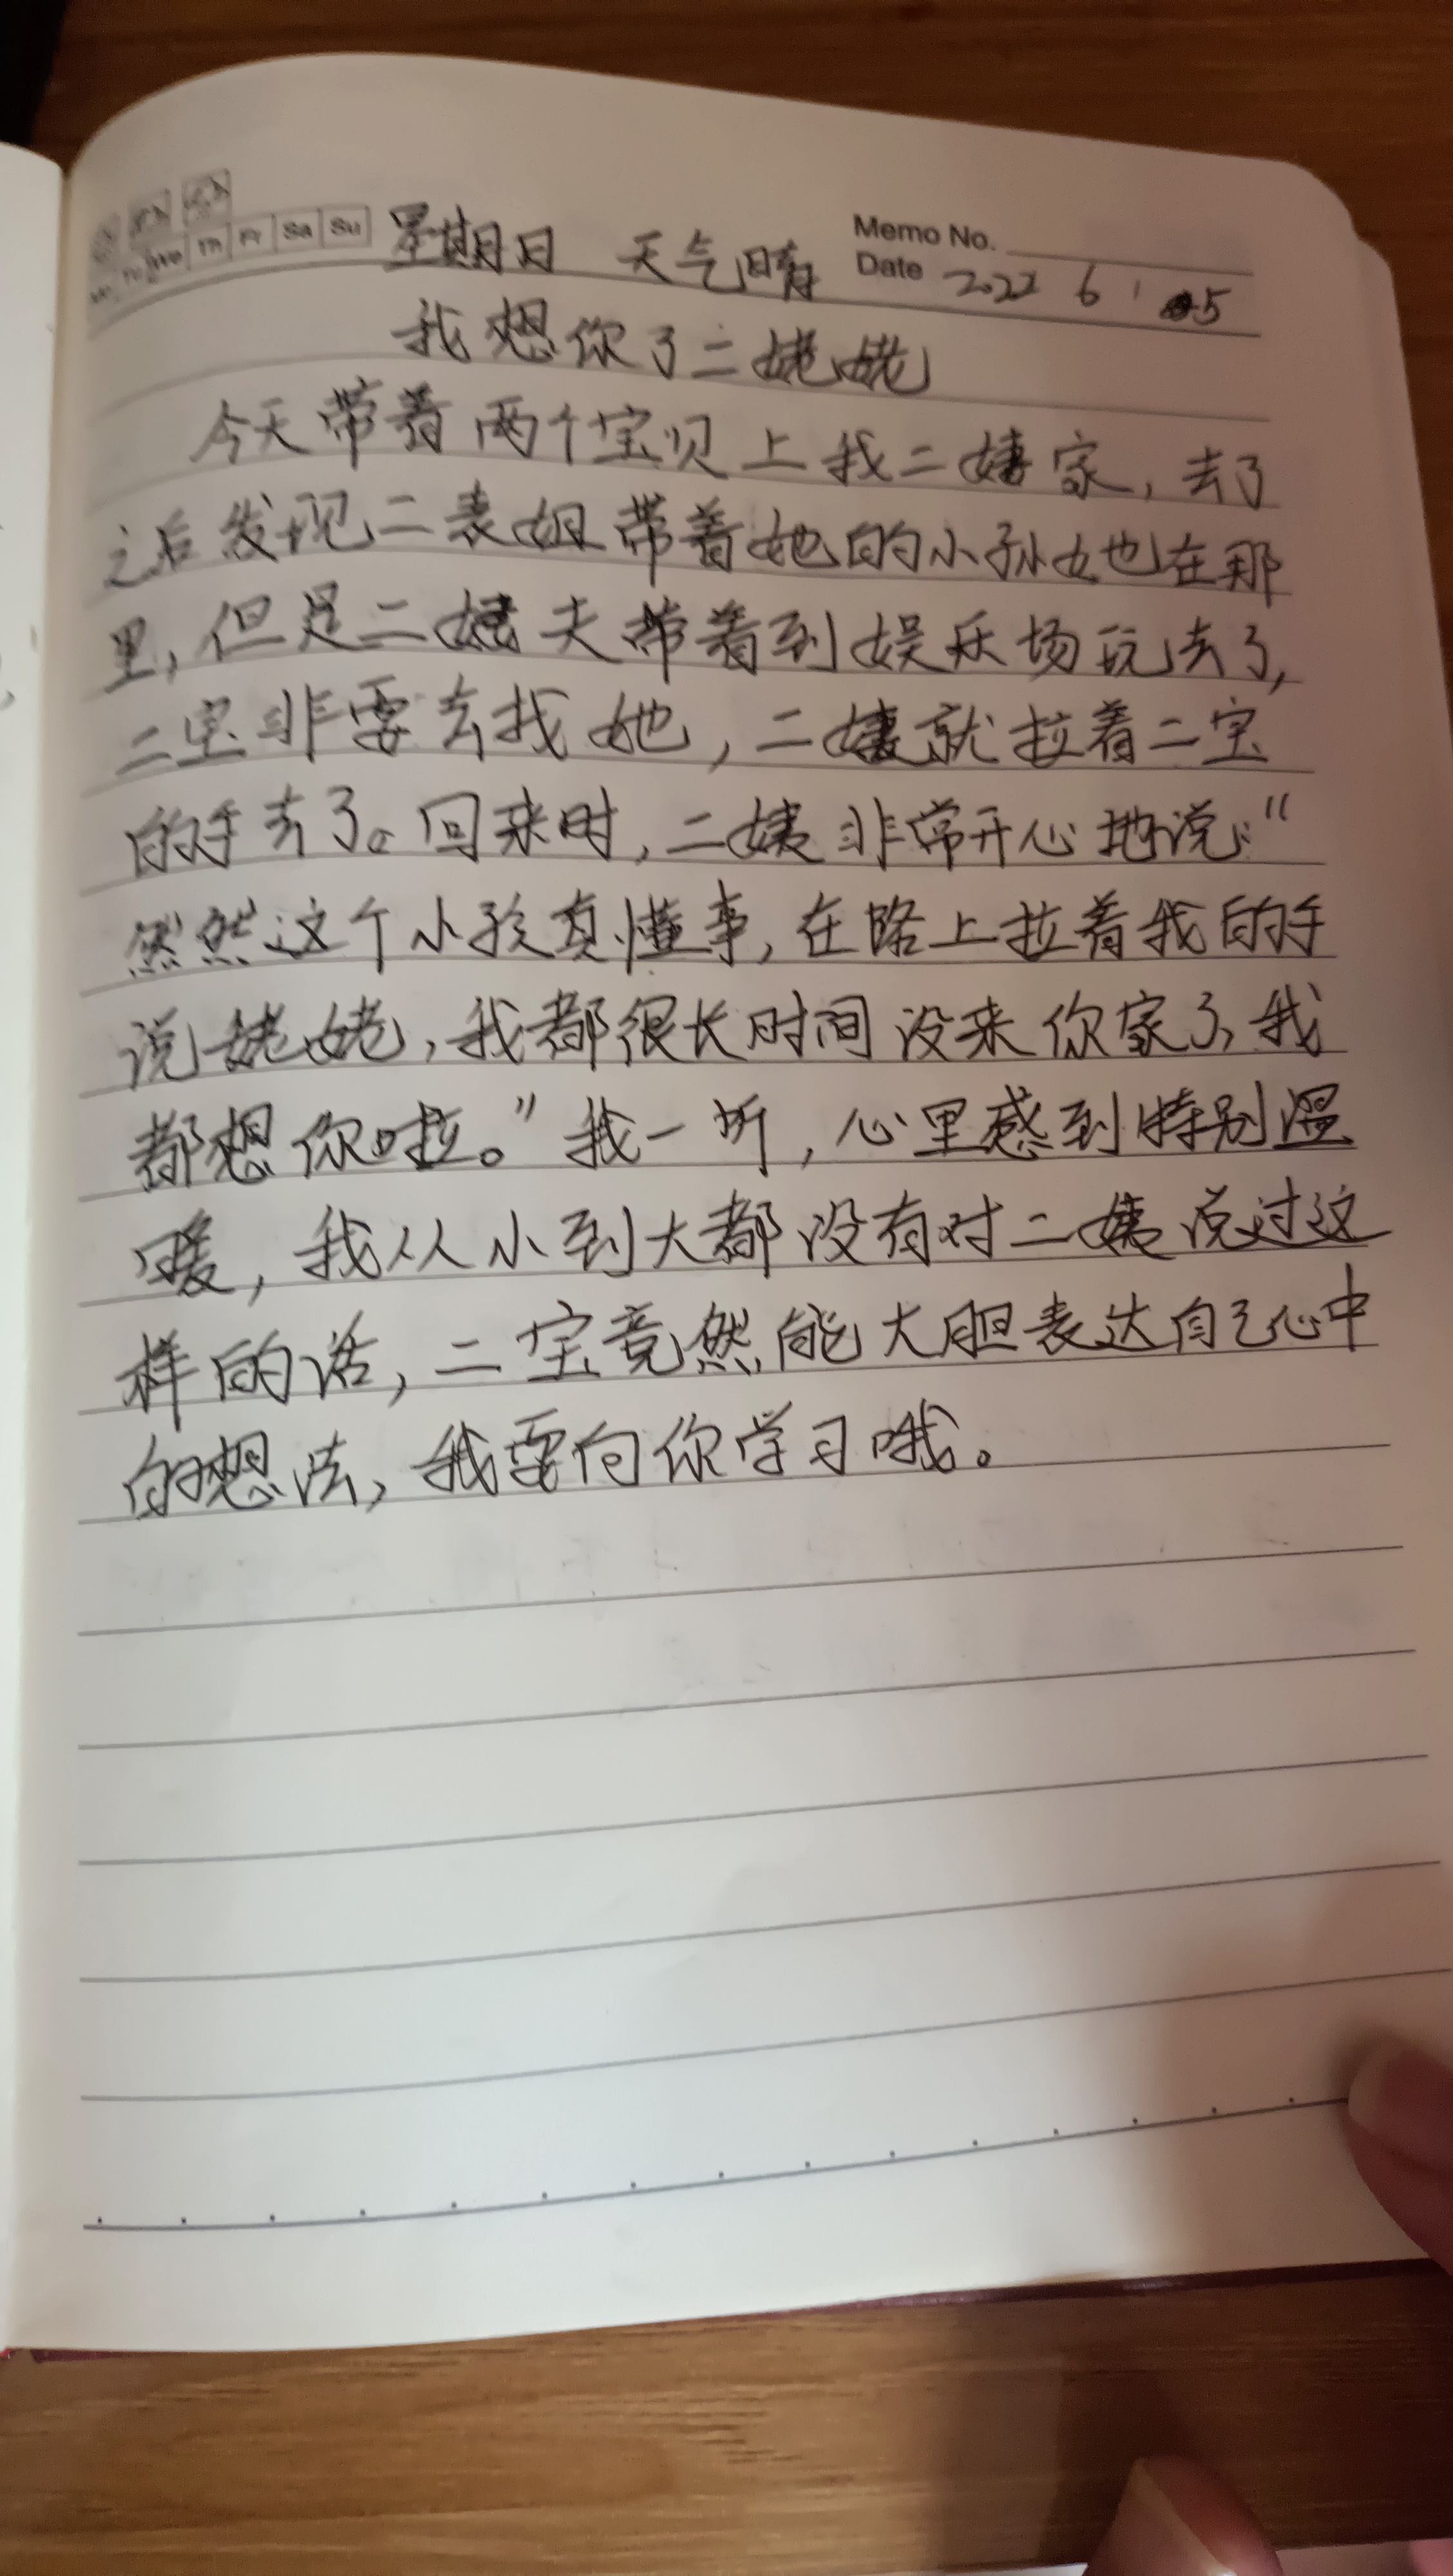 Fr Sa Su 星期日 天气晴 Memo No.
Date 2022 6 5
我想你了二姥姥
今天带着两个宝贝上我二姨家,去了
之后发现二表姐带着她的小孙女也在那
里,但是二姨夫带着到娱乐场玩去了,
二宝非要去找她,二姨就拉着二宝
的手去了。回来时,二姨非常开心地说:“
然然这个小孩真懂事,在路上拉着我的手
说姥姥,我都很长时间没来你家了,我
都想你啦。”我一听,心里感到特别温
暖,我从小到大都没有对二姨说过这
样的话,二宝竟然能大胆表达自己心中
的想法,我要向你学习哦。